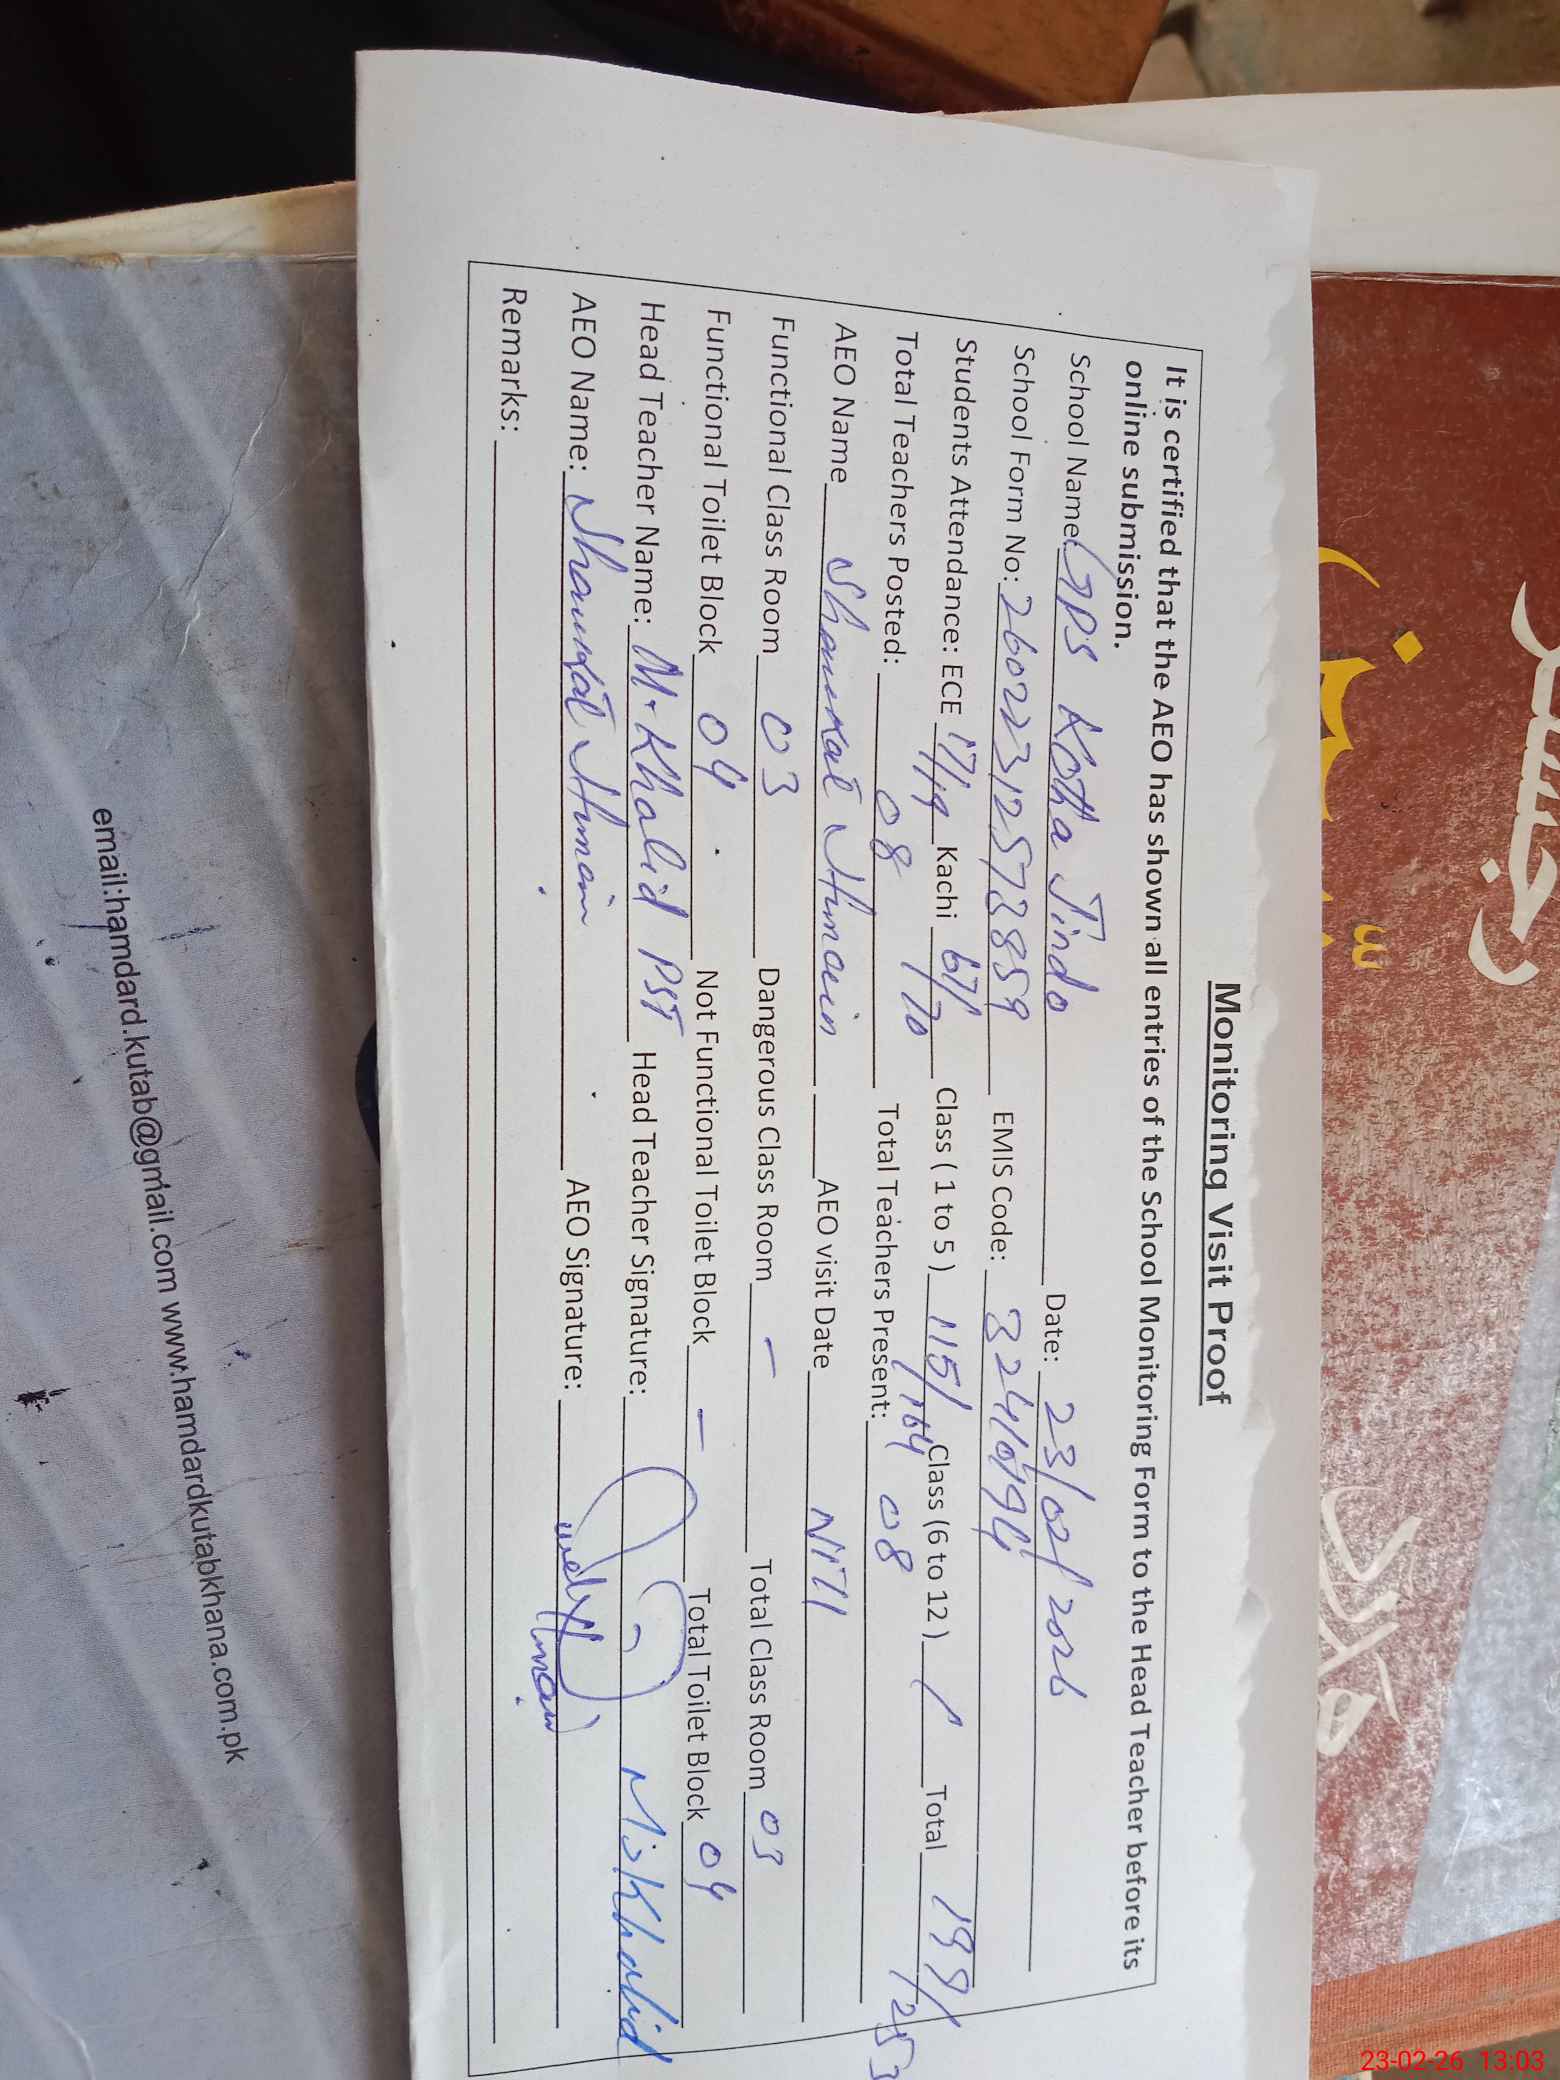 Monitoring Visit Proof
It is certified that the AEO has shown all entries of the School Monitoring Form to the Head Teacher before its
online submission.
School Name: GPS Kotla Jindo Date: 23/02/2026
School Form No: 26022312573859 EMIS Code:
Students Attendance: ECE 17/19 Kachi 67/70 Class ( 1 to 5 ) 115/164 Class (6 to 12 ) / Total 199/253
Total Teachers Posted: 08 Total Teachers Present: 08
AEO Name Shaukat Hussain AEO visit Date Nill
Functional Class Room 03 Dangerous Class Room — Total Class Room 03
Functional Toilet Block 04 Not Functional Toilet Block — Total Toilet Block 04
Head Teacher Name: M. Khalid PST Head Teacher Signature: M. Khalid
AEO Name: Shaukat Hussain AEO Signature:
Remarks:
email:hamdard.kutab@gmail.com www.hamdardkutabkhana.com.pk
رجسٹر
23-02-26 13:03